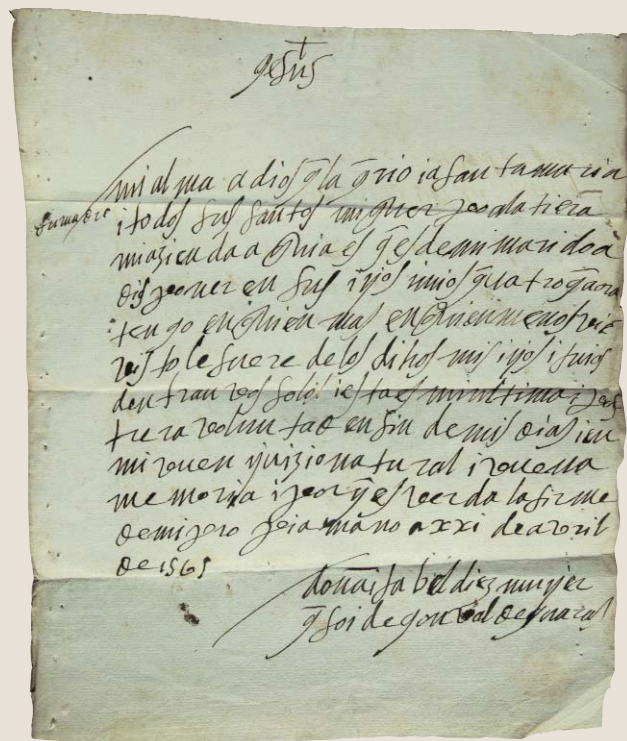 jesus
mi alma a dios q̃ la q̃rio i a santa maria
su madre
i todos sus santos mi querpo a la tiera
mi azienda a quien es q̃ es de mi marido a
disponer en sus ijos i mios quatro q̃ aora
tengo en quien mas en quien menos
visto le fuere de los dihos mis ijos i suios
dentranvos i esta es mi ultima i pos
trera voluntad en fin de mis dias i en
mi vuen juizio natural i vuena
memoria i por q̃ es verda la firme
de mi propeia mano a xxi de avril
de 1565
doña isabel diez mujer
q̃ soi de gonzal